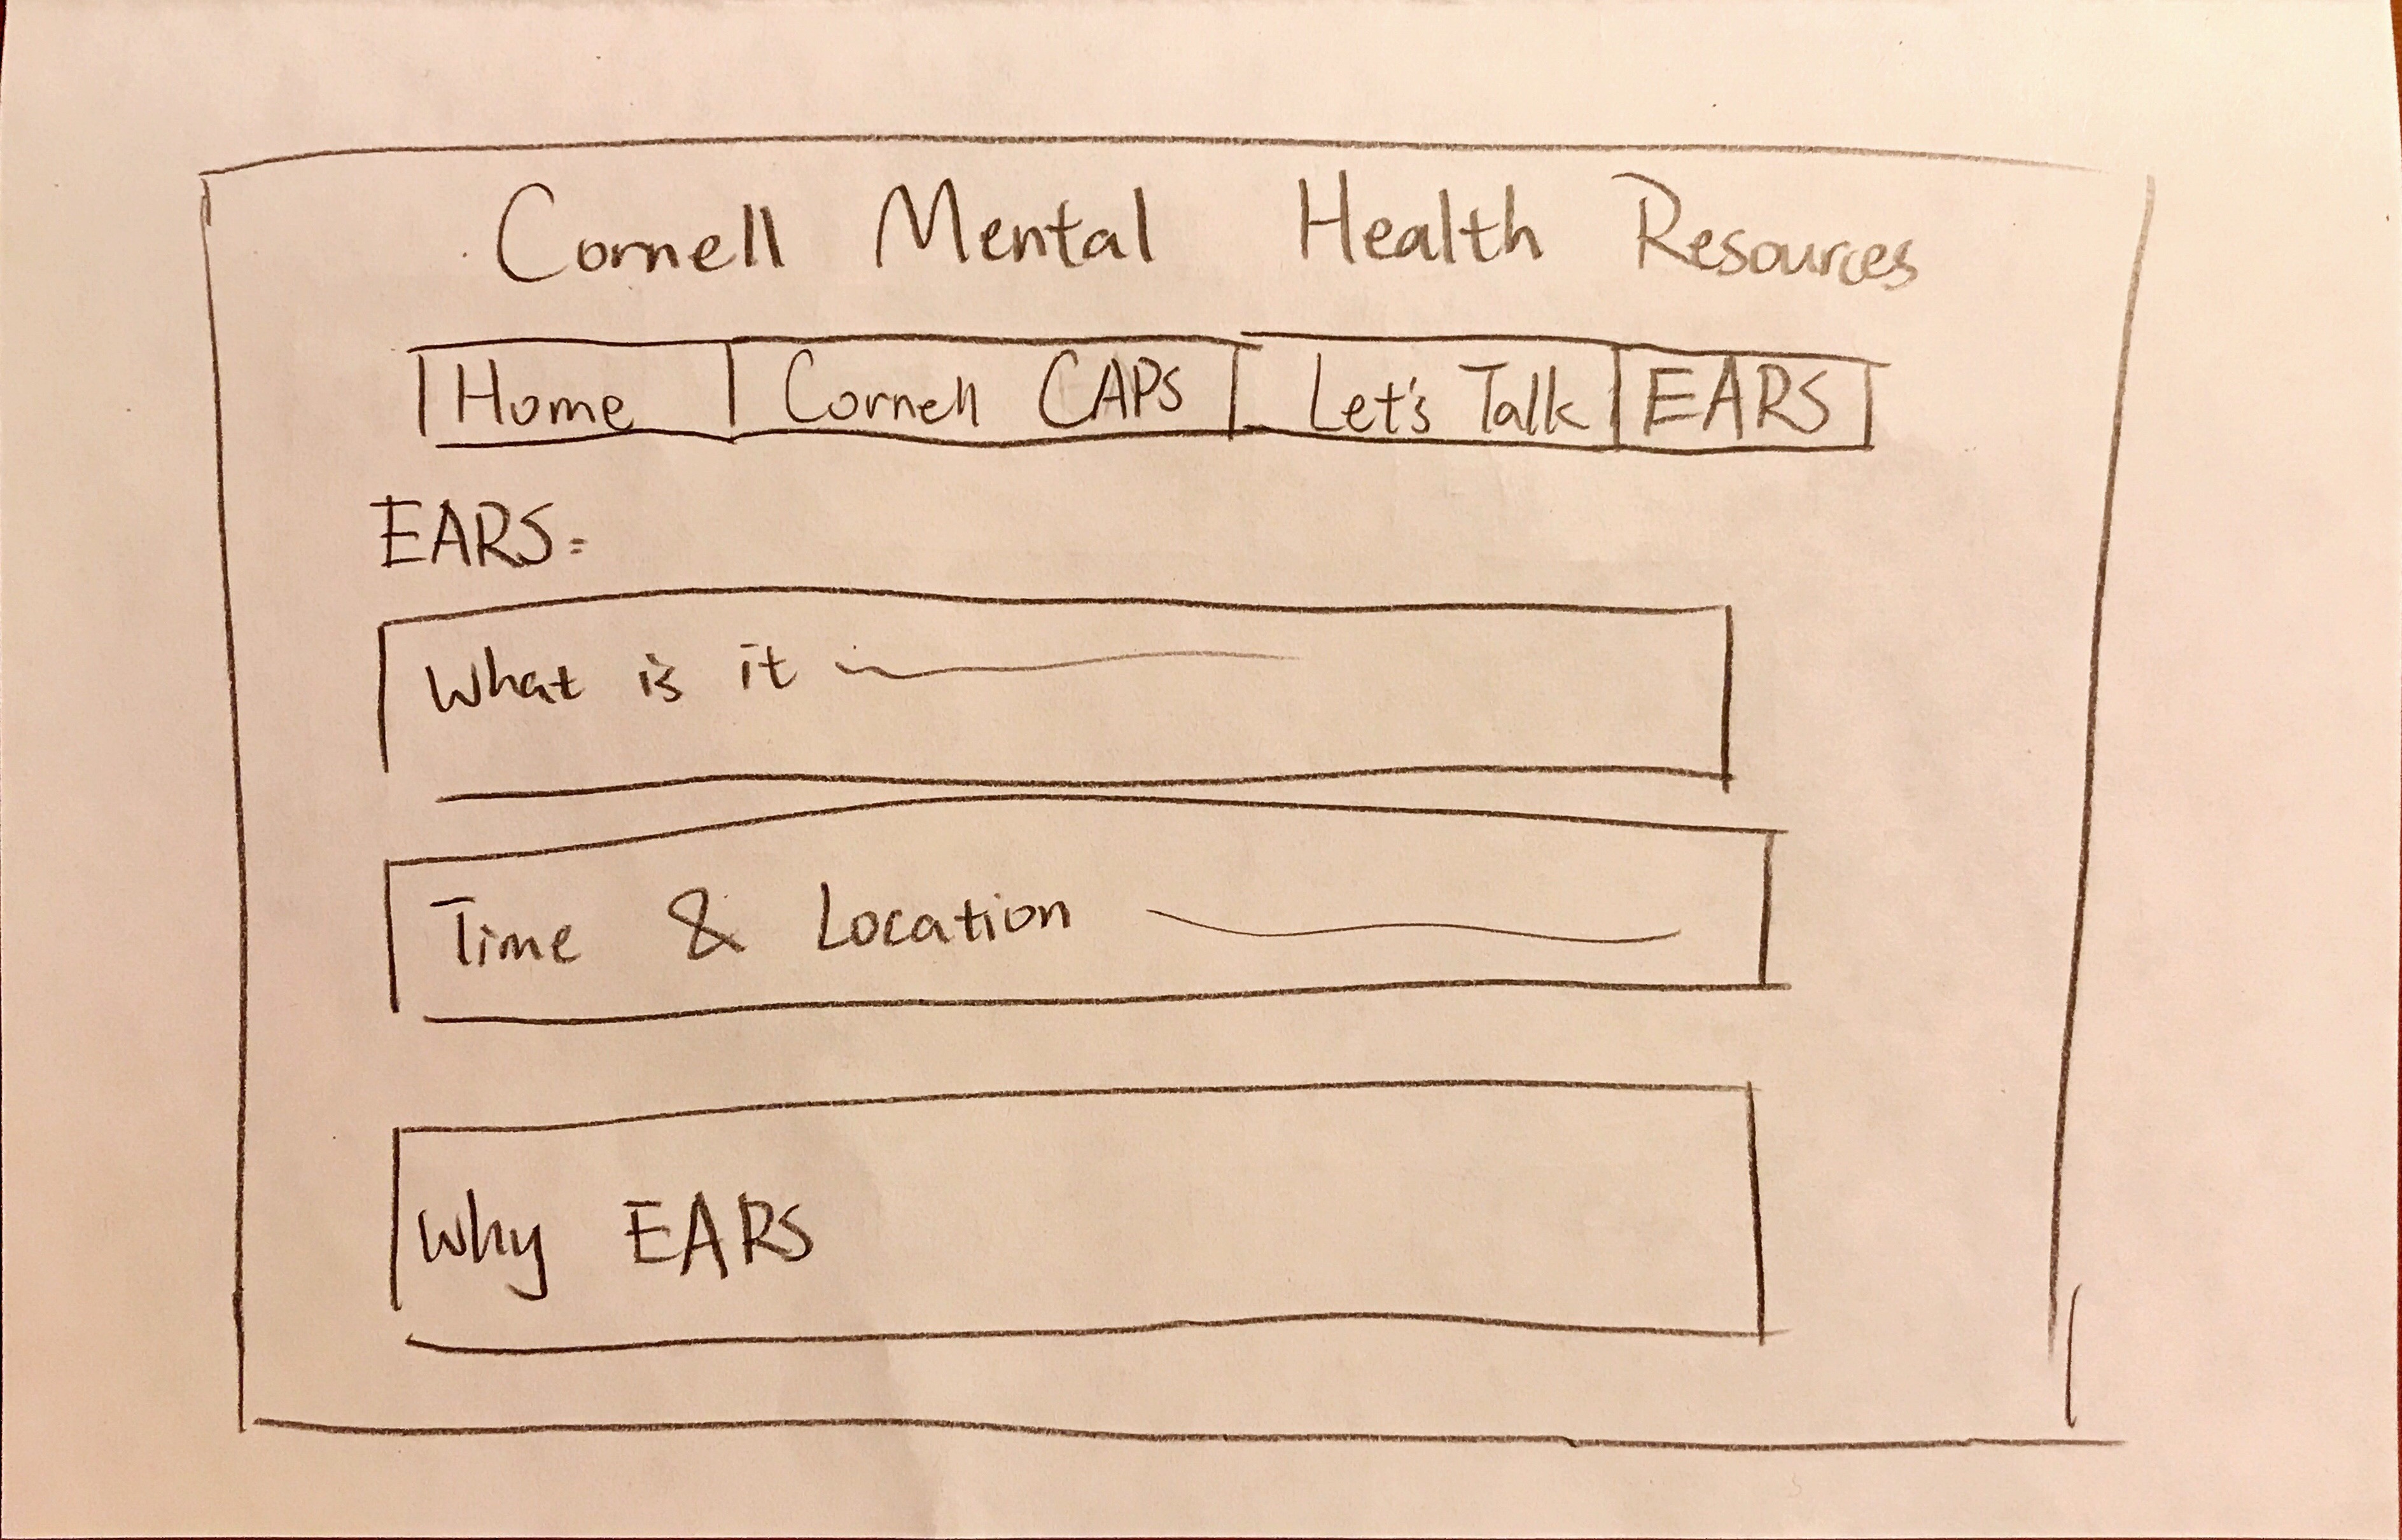 Cornell Mental Health Resources
Home Cornell CAPS Let's Talk EARS
EARS:
What is it
Time & Location
Why EARS